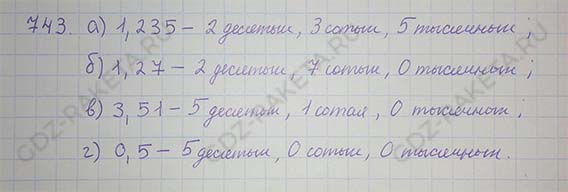 743. а) 1,235 – 2 десятых, 3 сотых, 5 тысячных;
б) 1,27 – 2 десятых, 7 сотых, 0 тысячных;
в) 3,51 – 5 десятых, 1 сотая, 0 тысячных;
г) 0,5 – 5 десятых, 0 сотых, 0 тысячных.
GDZ-RAKETA.RU
GDZ-RAKETA.RU
GDZ-RAKETA.RU